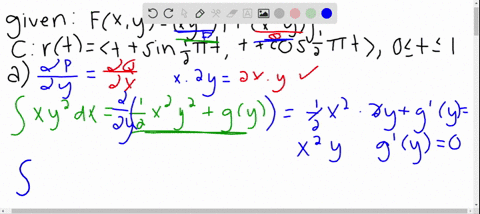 given: F(x,y)
C: r(t) = <t + sin ½πt, t + cos ½πt>, 0≤t≤1
a) ∂P/∂y = ∂Q/∂x x·2y = 2x·y ✓
∫ xy² dx = ∂/∂y (½ x²y² + g(y)) = ½x² · 2y + g'(y) =
x²y g'(y) = 0
∫